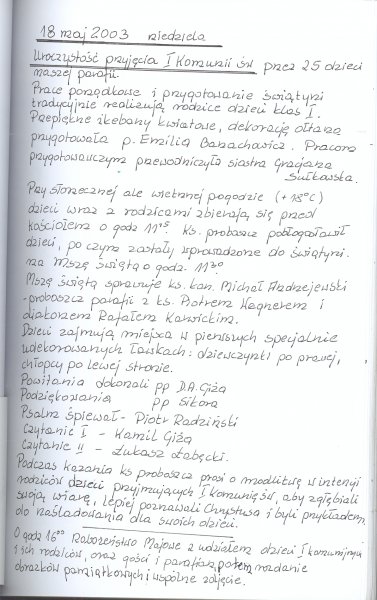 18 maj 2003 niedziela
Uroczystość przyjęcia I Komunii Św przez 25 dzieci
naszej parafii.
Prace porządkowe i przygotowanie świątyni
tradycyjnie realizują rodzice dzieci klas I.
Przepiękne ikebany kwiatowe, dekorację ołtarza
przygotowała p. Emilia Banachowicz. Pracom
przygotowawczym przewodniczyła siostra Grażyna
Sutkowska.
Przy słonecznej ale wietrznej pogodzie (+18°C)
dzieci wraz z rodzicami zbierają się przed
kościołem o godz 11¹⁵ ks. proboszcz pobłogosławił
dzieci, po czym zostały wprowadzone do świątyni.
na Mszę świętą o godz. 11³⁰
Mszę świętą sprawuje ks. kan. Michał Andrzejewski
- proboszcz parafii z ks. Piotrem Wagnerem i
diakonem Rafałem Karwickim.
Dzieci zajmują miejsca w pierwszych specjalnie
udekorowanych ławkach: dziewczynki po prawej,
chłopcy po lewej stronie.
Powitania dokonali pp D.A. Giża
Podziękowania pp Sikora
Psalm śpiewał - Piotr Radziński
Czytanie I - Kamil Giża
Czytanie II - Łukasz
Podczas kazania ks proboszcz prosi o modlitwę w intencji
rodziców dzieci przyjmujących I komunię św, aby zgłębiali
swoją wiarę, lepiej poznawali Chrystusa i byli przykładem
do naśladowania dla swoich dzieci.
O godz 16⁰⁰ Nabożeństwo Majowe z udziałem dzieci I komunijnych
i ich rodziców, oraz gości i parafian, potem rozdanie
obrazków pamiątkowych i wspólne zdjęcie.